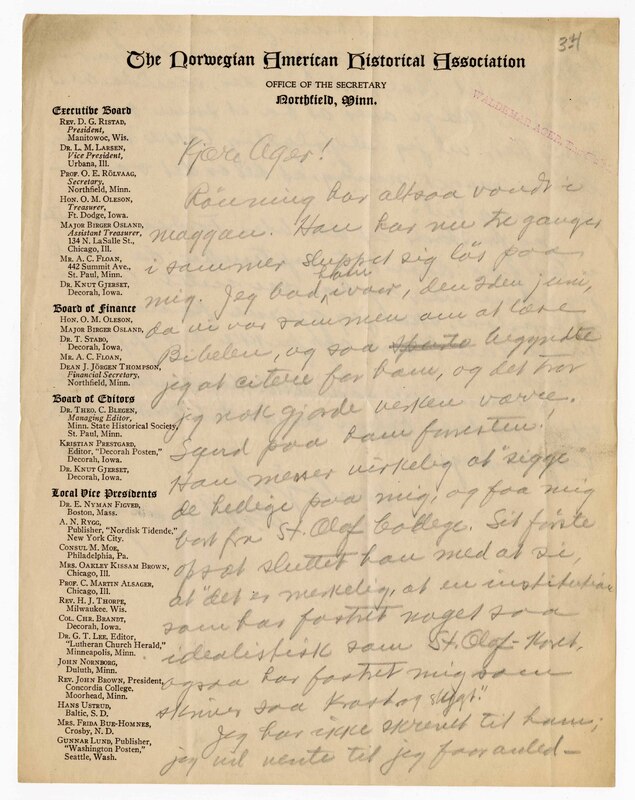 34
The Norwegian American Historical Association
OFFICE OF THE SECRETARY
Northfield, Minn.
WALDEMAR AGER
Executive Board
REV. D. G. RISTAD,
President,
Manitowoc, Wis.
DR. L. M. LARSEN,
Vice President,
Urbana, Ill.
PROF. O. E. RÖLVAAG,
Secretary,
Northfield, Minn.
HON. O. M. OLESON,
Treasurer,
FT. Dodge, Iowa.
MAJOR BIRGER OSLAND,
Assistant Treasurer,
134 N. LaSalle St.,
Chicago, Ill.
MR. A. C. FLOAN,
442 Summit Ave.,
St. Paul, Minn.
DR. KNUT GJERSET,
Decorah, Iowa.
Board of Finance
HON. O. M. OLESON,
MAJOR BIRGER OSLAND,
DR. T. STABO,
Decorah, Iowa.
MR. A. C. FLOAN,
DEAN J. JÖRGEN THOMPSON,
Financial Secretary,
Northfield, Minn.
Board of Editors
DR. THEO. C. BLEGEN,
Managing Editor,
Minn. State Historical Society,
St. Paul, Minn.
KRISTIAN PRESTGARD,
Editor, "Decorah Posten,"
Decorah, Iowa.
DR. KNUT GJERSET,
Decorah, Iowa.
Local Vice Presidents
DR. E. NYMAN FIGVED,
Boston, Mass.
A. N. RYGG,
Publisher, "Nordisk Tidende,"
New York City.
CONSUL M. MOE,
Philadelphia, Pa.
MRS. OAKLEY KISSAM BROWN,
Chicago, Ill.
PROF. C. MARTIN ALSAGER,
Chicago, Ill.
REV. H. J. THORPE,
Milwaukee, Wis.
COL. CHR. BRANDT,
Decorah, Iowa.
DR. G. T. LEE, Editor,
"Lutheran Church Herald,"
Minneapolis, Minn.
JOHN NORNBORG,
Duluth, Minn.
REV. JOHN BROWN, President,
Concordia College,
Moorhead, Minn.
HANS USTRUD,
Baltic, S. D.
MRS. FRIDA BUE-HOMNES,
Crosby, N. D.
GUNNAR LUND, Publisher,
"Washington Posten,"
Seattle, Wash.
Kjære Ager!
Rönning har altsaa vondt i
maggan. Han har nu tre ganger
i sommer sluppet sig lös paa
mig. Jeg bad ham, ivaar, den 3den juni,
da vi var sammen om at læse
Bibelen, og saa begyndte
jeg at citere for ham, og det tror
jeg nok gjorde verken værre.
Synd paa ham forresten!
Han mener virkelig at "sigge"
de hellige paa mig, og faa mig
bort fra St. Olaf College. Sit förste
opsæt sluttet han med at si,
at "det er merkelig, at en institution
som har fostret noget saa
idealistisk som St. Olaf Koret,
ogsaa har fostret mig som
skriver saa krast og stygt."
Jeg har ikke skrevet til ham;
jeg vil vente til jeg faar anled-